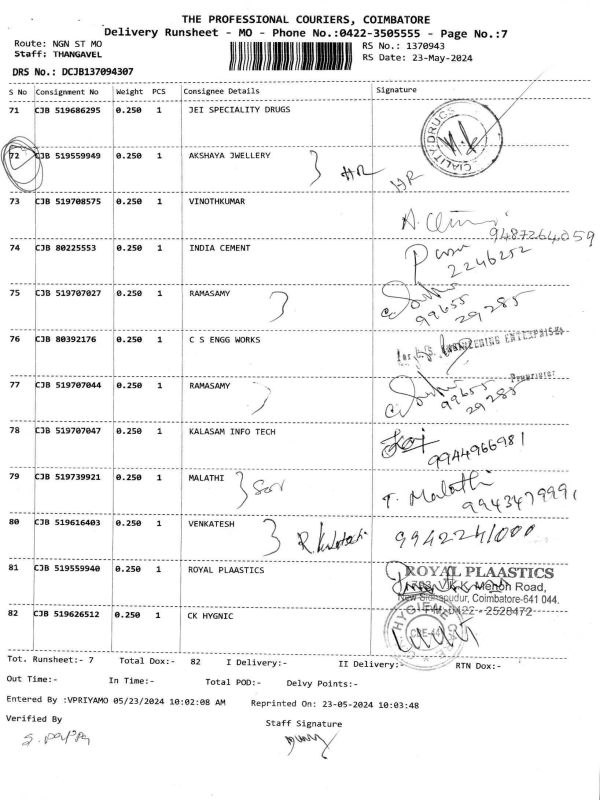 THE PROFESSIONAL COURIERS, COIMBATORE
Delivery Runsheet - MO - Phone No.:0422-3505555 - Page No.:7
Route: NGN ST MO
RS No.: 1370943
Staff: THANGAVEL
RS Date: 23-May-2024
DRS No.: DCJB137094307
S No Consignment No Weight PCS Consignee Details Signature
71 CJB 519686295 0.250 1 JEI SPECIALITY DRUGS
72 CJB 519559949 0.250 1 AKSHAYA JWELLERY HR HR
73 CJB 519708575 0.250 1 VINOTHKUMAR
9487264059
74 CJB 80225553 0.250 1 INDIA CEMENT
2246252
75 CJB 519707027 0.250 1 RAMASAMY
99655
29285
76 CJB 80392176 0.250 1 C S ENGG WORKS
for C.S. ENGINEERING ENTERPRISES
Proprietor
77 CJB 519707044 0.250 1 RAMASAMY
99655
29285
78 CJB 519707047 0.250 1 KALASAM INFO TECH
9944966981
79 CJB 519739921 0.250 1 MALATHI T. Malathi
80 CJB 519616403 0.250 1 VENKATESH 9942241000
81 CJB 519559940 0.250 1 ROYAL PLAASTICS
ROYAL PLAASTICS
V.K.K. Menon Road,
New Siddhapudur, Coimbatore-641 044.
0422 - 2528472
82 CJB 519626512 0.250 1 CK HYGNIC
Tot. Runsheet:- 7 Total Dox:- 82 I Delivery:- II Delivery:- RTN Dox:-
Out Time:- In Time:- Total POD:- Delvy Points:-
Entered By :VPRIYAMO 05/23/2024 10:02:08 AM Reprinted On: 23-05-2024 10:03:48
Verified By
Staff Signature